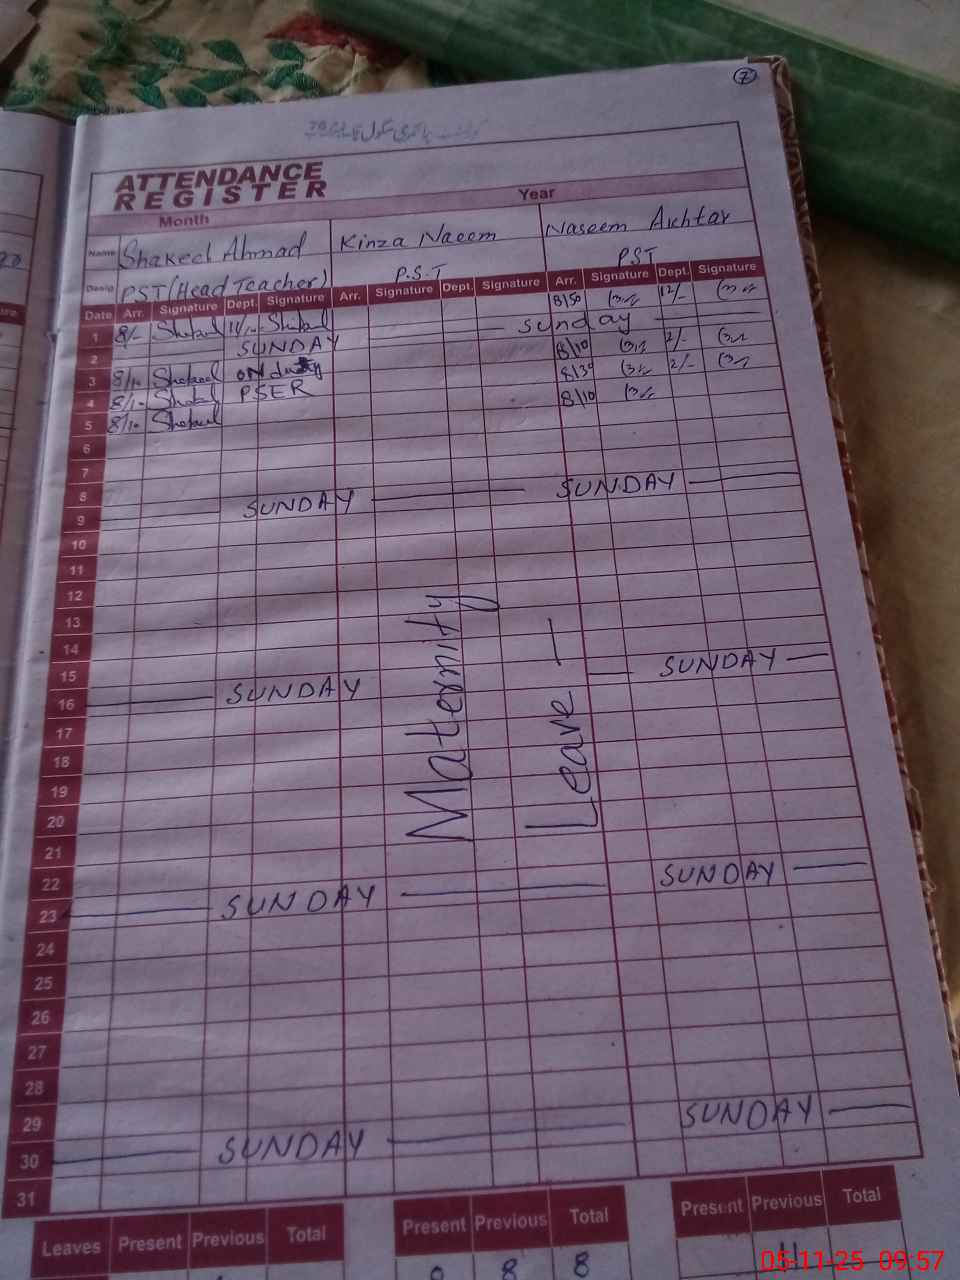 7
ATTENDANCE
REGISTER
Month Year
Name Shakeel Ahmad Kinza Naeem Naseem Akhtar
Desig PST (Head Teacher) P.S.T PST
Date Arr. Signature Dept. Signature Arr. Signature Dept. Signature Arr. Signature Dept. Signature
1 8/- Shakeel Shakeel 8/50 12/-
2 SUNDAY Sunday
3 8/10 Shakeel ON duty 8/10 2/-
4 8/10 Shakeel PSER 8/30 2/-
5 8/10 Shakeel 8/10
6
7
8
9 SUNDAY SUNDAY
10
11
12
13
14
15
16 SUNDAY SUNDAY
17
18
19
20
21
22
23 SUNDAY SUNDAY
24
25
26
27
28
29
30 SUNDAY SUNDAY
31
Maternity
Leave
Leaves Present Previous Total Present Previous Total Present Previous Total
8 8
05-11-25 09:57